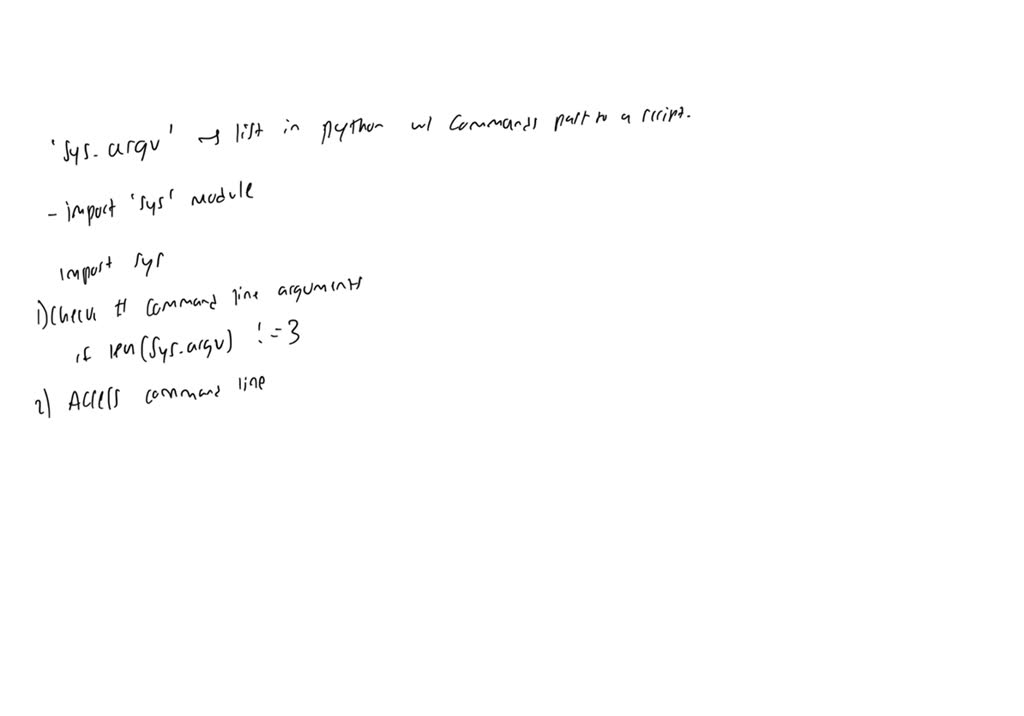 'sys.argv' → list in python w/ commands part to a script.
- import 'sys' module
import sys
1) Check # command line arguments
if len(sys.argv) != 3
2) Access command line